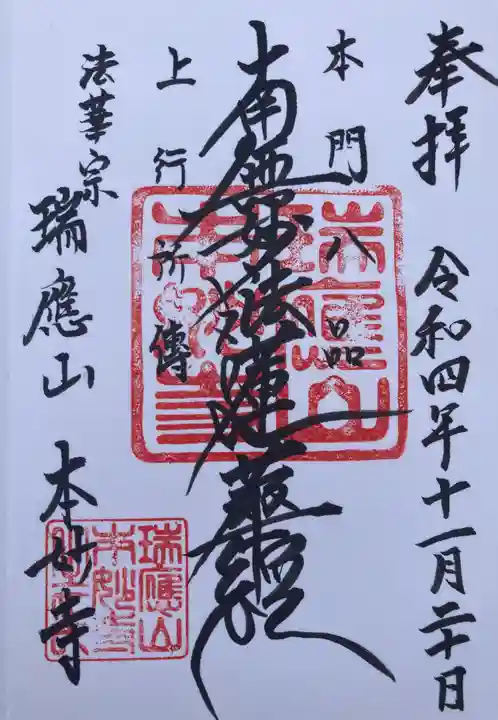 奉拝
令和四年十一月二十日
本門八品
南無妙法蓮華経
上行所傳
法華宗
瑞應山
本妙寺
瑞應山
本妙寺